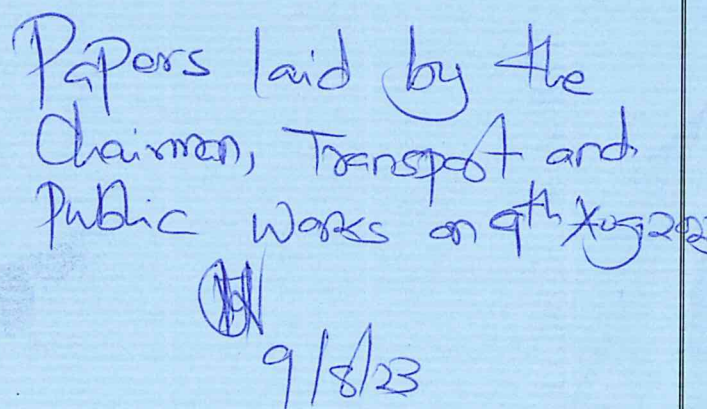 Papers laid by the
Chairman, Transport and
Public Works on 9th Aug 202
9/8/23